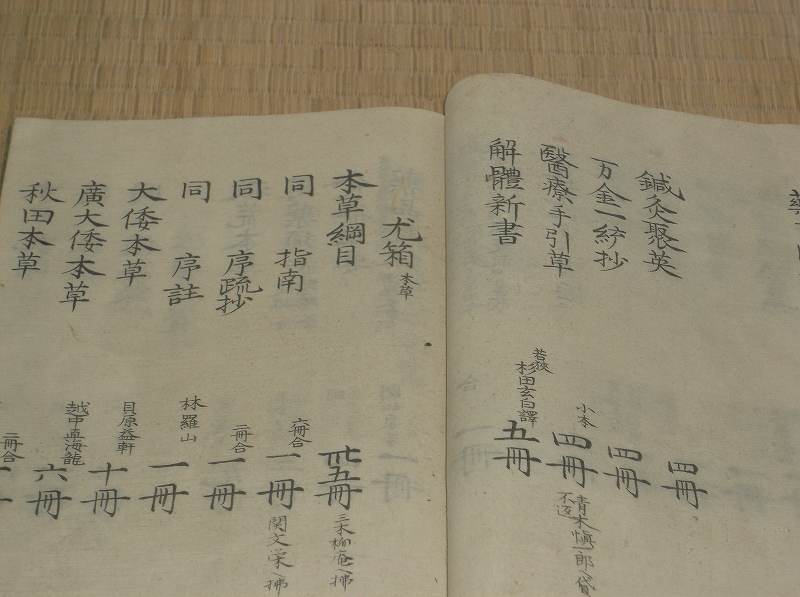 鍼灸聚英 四冊
万金一統抄 四冊
醫療手引草 小本 四冊 青木愼一郎へ貸 不返
解體新書 若狭 杉田玄白譯 五冊
尤箱 本草
本草綱目 卅五冊 三木柳庵へ拂
同 指南 六冊合 一冊 関文栄へ拂
同 序疏抄 二冊合 一冊
同 序註 林羅山 一冊
大倭本草 貝原益軒 十冊
廣大倭本草 越中直海龍 六冊
秋田本草 二冊合